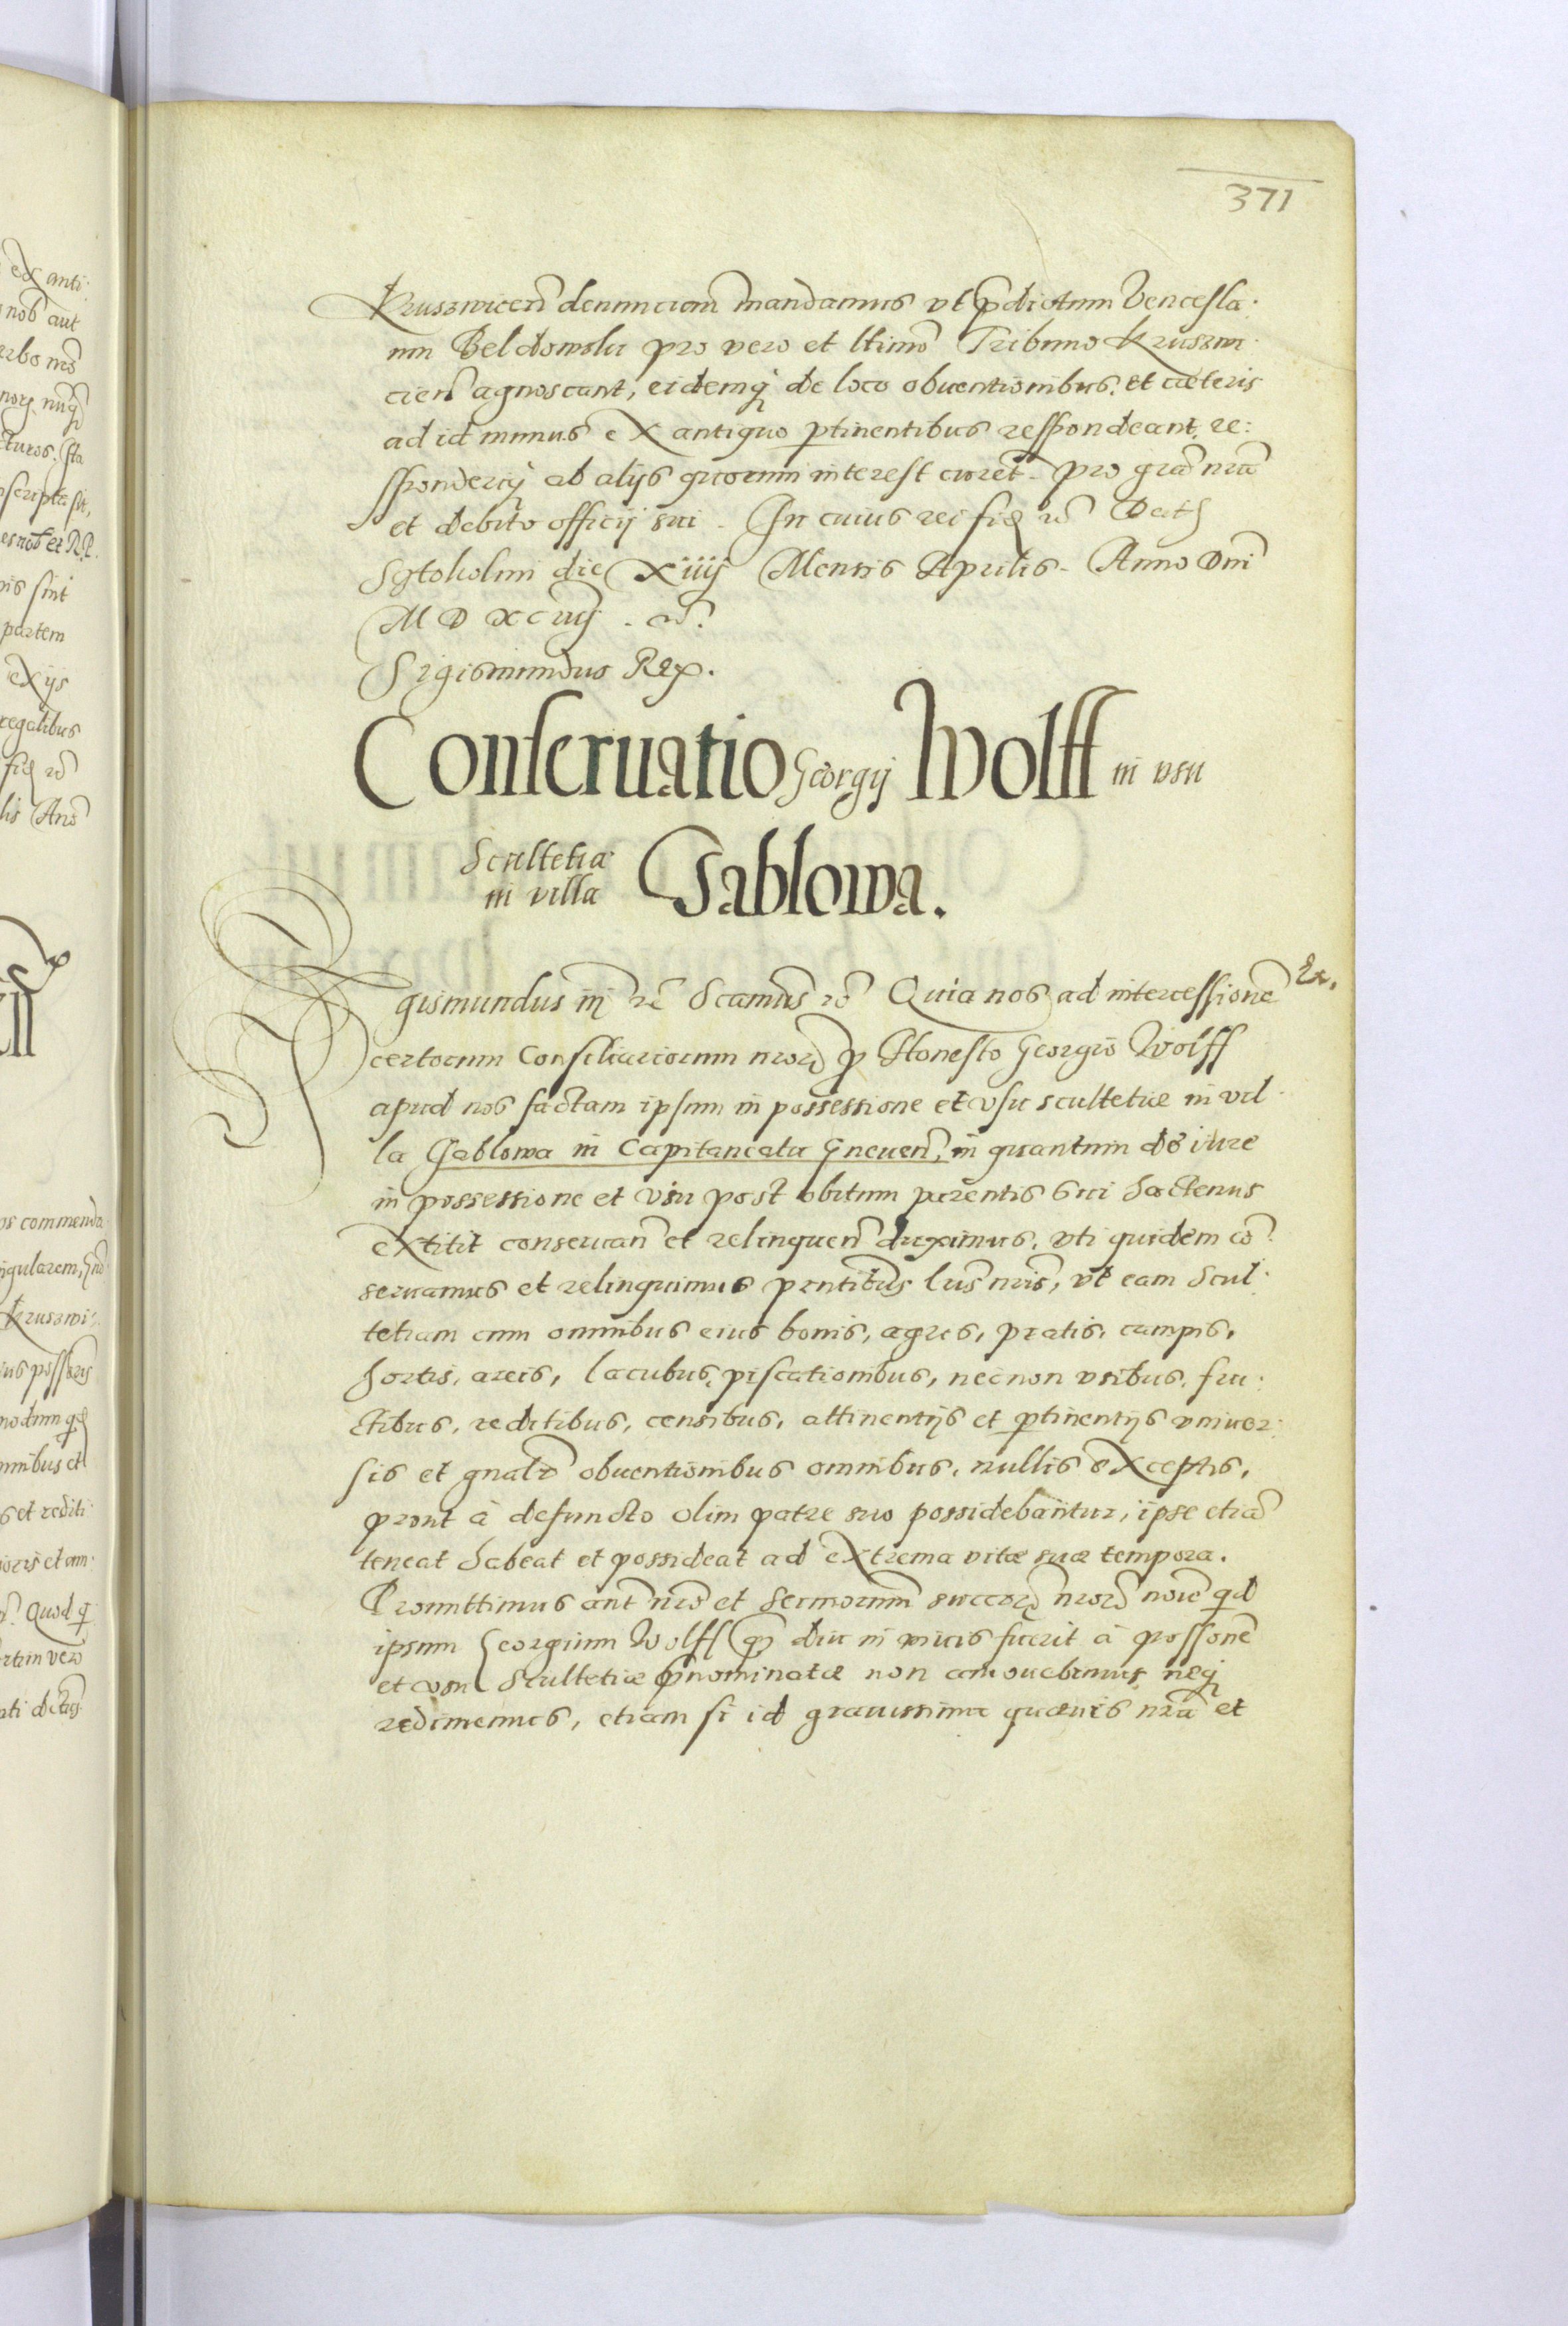 371
Kruszwiceñ denunciam̃ mandamus vt p̃dictum Vencesla-
um Beldowsky pro vero et ltimo Tribuno Kruszwi-
cień agnoscant, eidemq; de loco obuentionibus et cæteris
ad id munus ex antiquo ptinentibus respondeant, re:
sponderiq; ab alijs quorum interest curet. pro grã nrã
et debito officij sui. In cuius rei fid rõ Dat
Sztokolmi die XIIIJ Mensis Aprilis. Anno Dni
M D XC VIIJ.
Sigismundus Rex.
Conseruatio Georgij Wolff in vsu
Scultetiæ
in villa Gablowa.
Sigismundus iij rõ Scamus rõ Quia nos ad intercessione Ex.
certorum Consiliariorum nrorũ p Honesto Georgio Wolff
apud nos factam ipsum in possessione et vsu scultetiæ in vil-
la Gablowa in Capitaneatu Gneuen, in quantum de iure
in possessione et vsu post obitum parentis sui hactenus
extitit conseruań et relinqueñ duximus, vti quidem cõ
seruamus et relinquimus pntibus lrĩs nrĩs, vt eam Scul-
tetiam cum omnibus eius bonis, agris, pratis, campis,
hortis, areis, lacubus, piscationibus, nec non vsibus, fru-
ctibus, reditibus, censibus, attinentijs et ptinentijs vniuer-
sis et gnalr obuentionibus omnibus, nullis exceptis,
prout à defuncto olim patre suo possidebantur, ipse etiã
teneat habeat et possideat ad extrema vitæ suæ tempora.
Promittimus aut nrõ et Sermorum succorũ nrorũ noĩe qd
ipsum Georgium Wolff q̃ diu in viuis fuerit à possone
et vsu Scultetiæ p̃nominatæ non amouebimus neq;
redimemus, etiam si id grauissima quæuis nrã et
ex anti-
nob aut
sint
partem
ex ijs
regalibus
lis Anõ
commenda
Kruszwi-
et rediti
Quod
vero